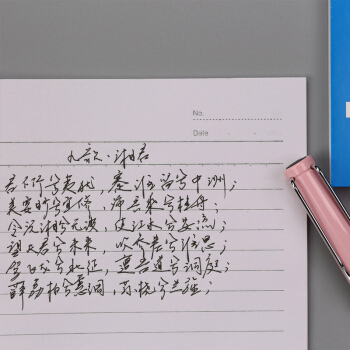 No.
Date
九歌·湘君
君不行兮夷犹，蹇谁留兮中洲；
美要眇兮宜修，沛吾乘兮桂舟；
令沅湘兮无波，使江水兮安流；
望夫君兮未来，吹参差兮谁思；
驾飞龙兮北征，邅吾道兮洞庭；
薜荔柏兮蕙绸，荪桡兮兰旌；